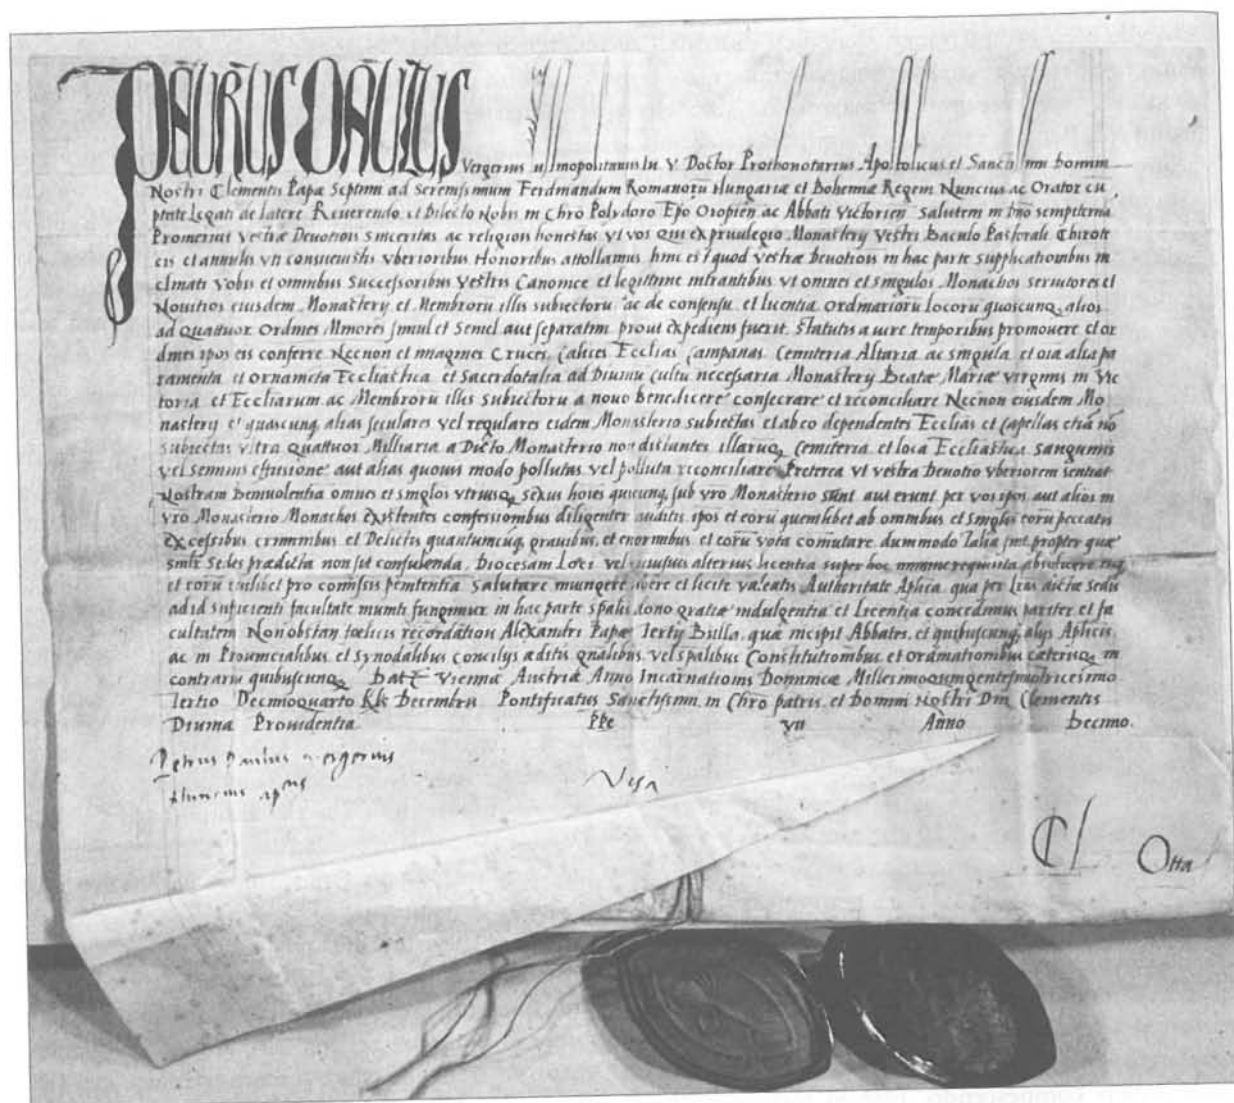 PETRUS PAULUS Vergerius Iustinopolitanus Iu. V. Doctor Prothonotarius Apostolicus et Sanctissimi Domini
Nostri Clementis Papæ Septimi ad Serenissimum Ferdinandum Romanorū Hungariæ et Bohemiæ Regem Nuncius ac Orator cū
ptate Legati de latere Reuerendo et Dilecto Nobis in Chro Polydoro Epo Oropien ac Abbati Victorien Salutem in Dno sempiternā
Promeruit Vestræ Deuotionis Sinceritas ac religionis honestas vt vos Qui ex priuilegio Monastery Vestri Baculo Pastorali Chirote
cis et annulis vti consueuistis vberioribus Honoribus attollamus hinc est quod Vestræ Deuotionis in hac parte Supplicationibus in
clinati Vobis et omnibus Successoribus Vestris Canonice et legittime intrantibus vt omnes et singulos Monachos seruitores et
Nouitios eiusdem Monastery et Membrorū illi subiectorū ac de consensu et licentia Ordinariorū locorū quoscunq alios
ad Quattuor Ordines Minores simul et Semel aut separatim prout expediens fuerit Statutis a iure temporibus promouere et or
dines ipos eis conferre Necnon et imagines Cruces Calices Ecclias Campanas Cemiteria Altaria ac singula et oia alia pa
ramenta et ornamēta Ecclīastica et Sacerdotalia ad Diuinū Cultū necessaria Monastery Beatæ Mariæ Virginis in Vic
toria et Eccliarum ac Membrorū illi subiectorū a nouo Benedicere consecrare et reconciliare Necnon eiusdem Mo
nastery et quascunq alias seculares vel regulares eidem Monasterio subiectas et ab eo dependentes Ecclias et Capellas etiā nō
subiectas vltra Quattuor Milliaria a Dicto Monasterio non distantes illarūq Cemiteria et loca Eccliastica sanguinis
vel seminis effusione aut alias quouis modo pollutas vel polluta reconciliare Preterea vt vestra Deuotio vberiorem sentiat
Nostram Beniuolentiā omnes et singlos vtriusq sexus hoies quicunq sub vro Monasterio sunt aut erunt per vos ipos aut alios in
vro Monasterio Monachos existentes confessionibus diligenter auditis ipos et eorū quemlibet ab omnibus et singlis eorū peccatis
excessibus criminibus et Delictis quantumcūq grauibus et enormibus et eorū vota comutare dummodo Talia sint propter quæ
Sedes prædicta non sit consulenda Diocesani Loci vel cuiusuis alterius licentia super hoc minime requisita absoluere
et eorū cuilibet pro comissis penitentiā Salutarē iniungere libere et licite valeatis Authoritate Aplica qua per Lras dictæ sedis
ad id sufficienti facultate muniti fungimur in hac parte spāli dono gratiæ indulgentiā et Licentiā concedimus pariter et fa
cultatem Non obstan foelicis recordation Alexandri Papæ Tertij Bulla quæ incipit Abbates et quibuscunq alijs Aplicis
ac in Prouincialibus et Synodalibus concilijs æditis gnalibus vel spalibus Constitutionibus et Ordinationibus cæterisq in
contrariū quibuscunq Dat Viennæ Austriæ Anno Incarnationis Dominicæ Millesimoquingentesimotricesimo
Tertio Decimoquarto Kls Decembris Pontificatus Sanctissimi in Chro patris et Domini Nostri Dni Clementis
Diuina Prouidentia PPe VII Anno Decimo.
Petrus Paulus Vergerius
Nuncius apcus
Visa
Otta